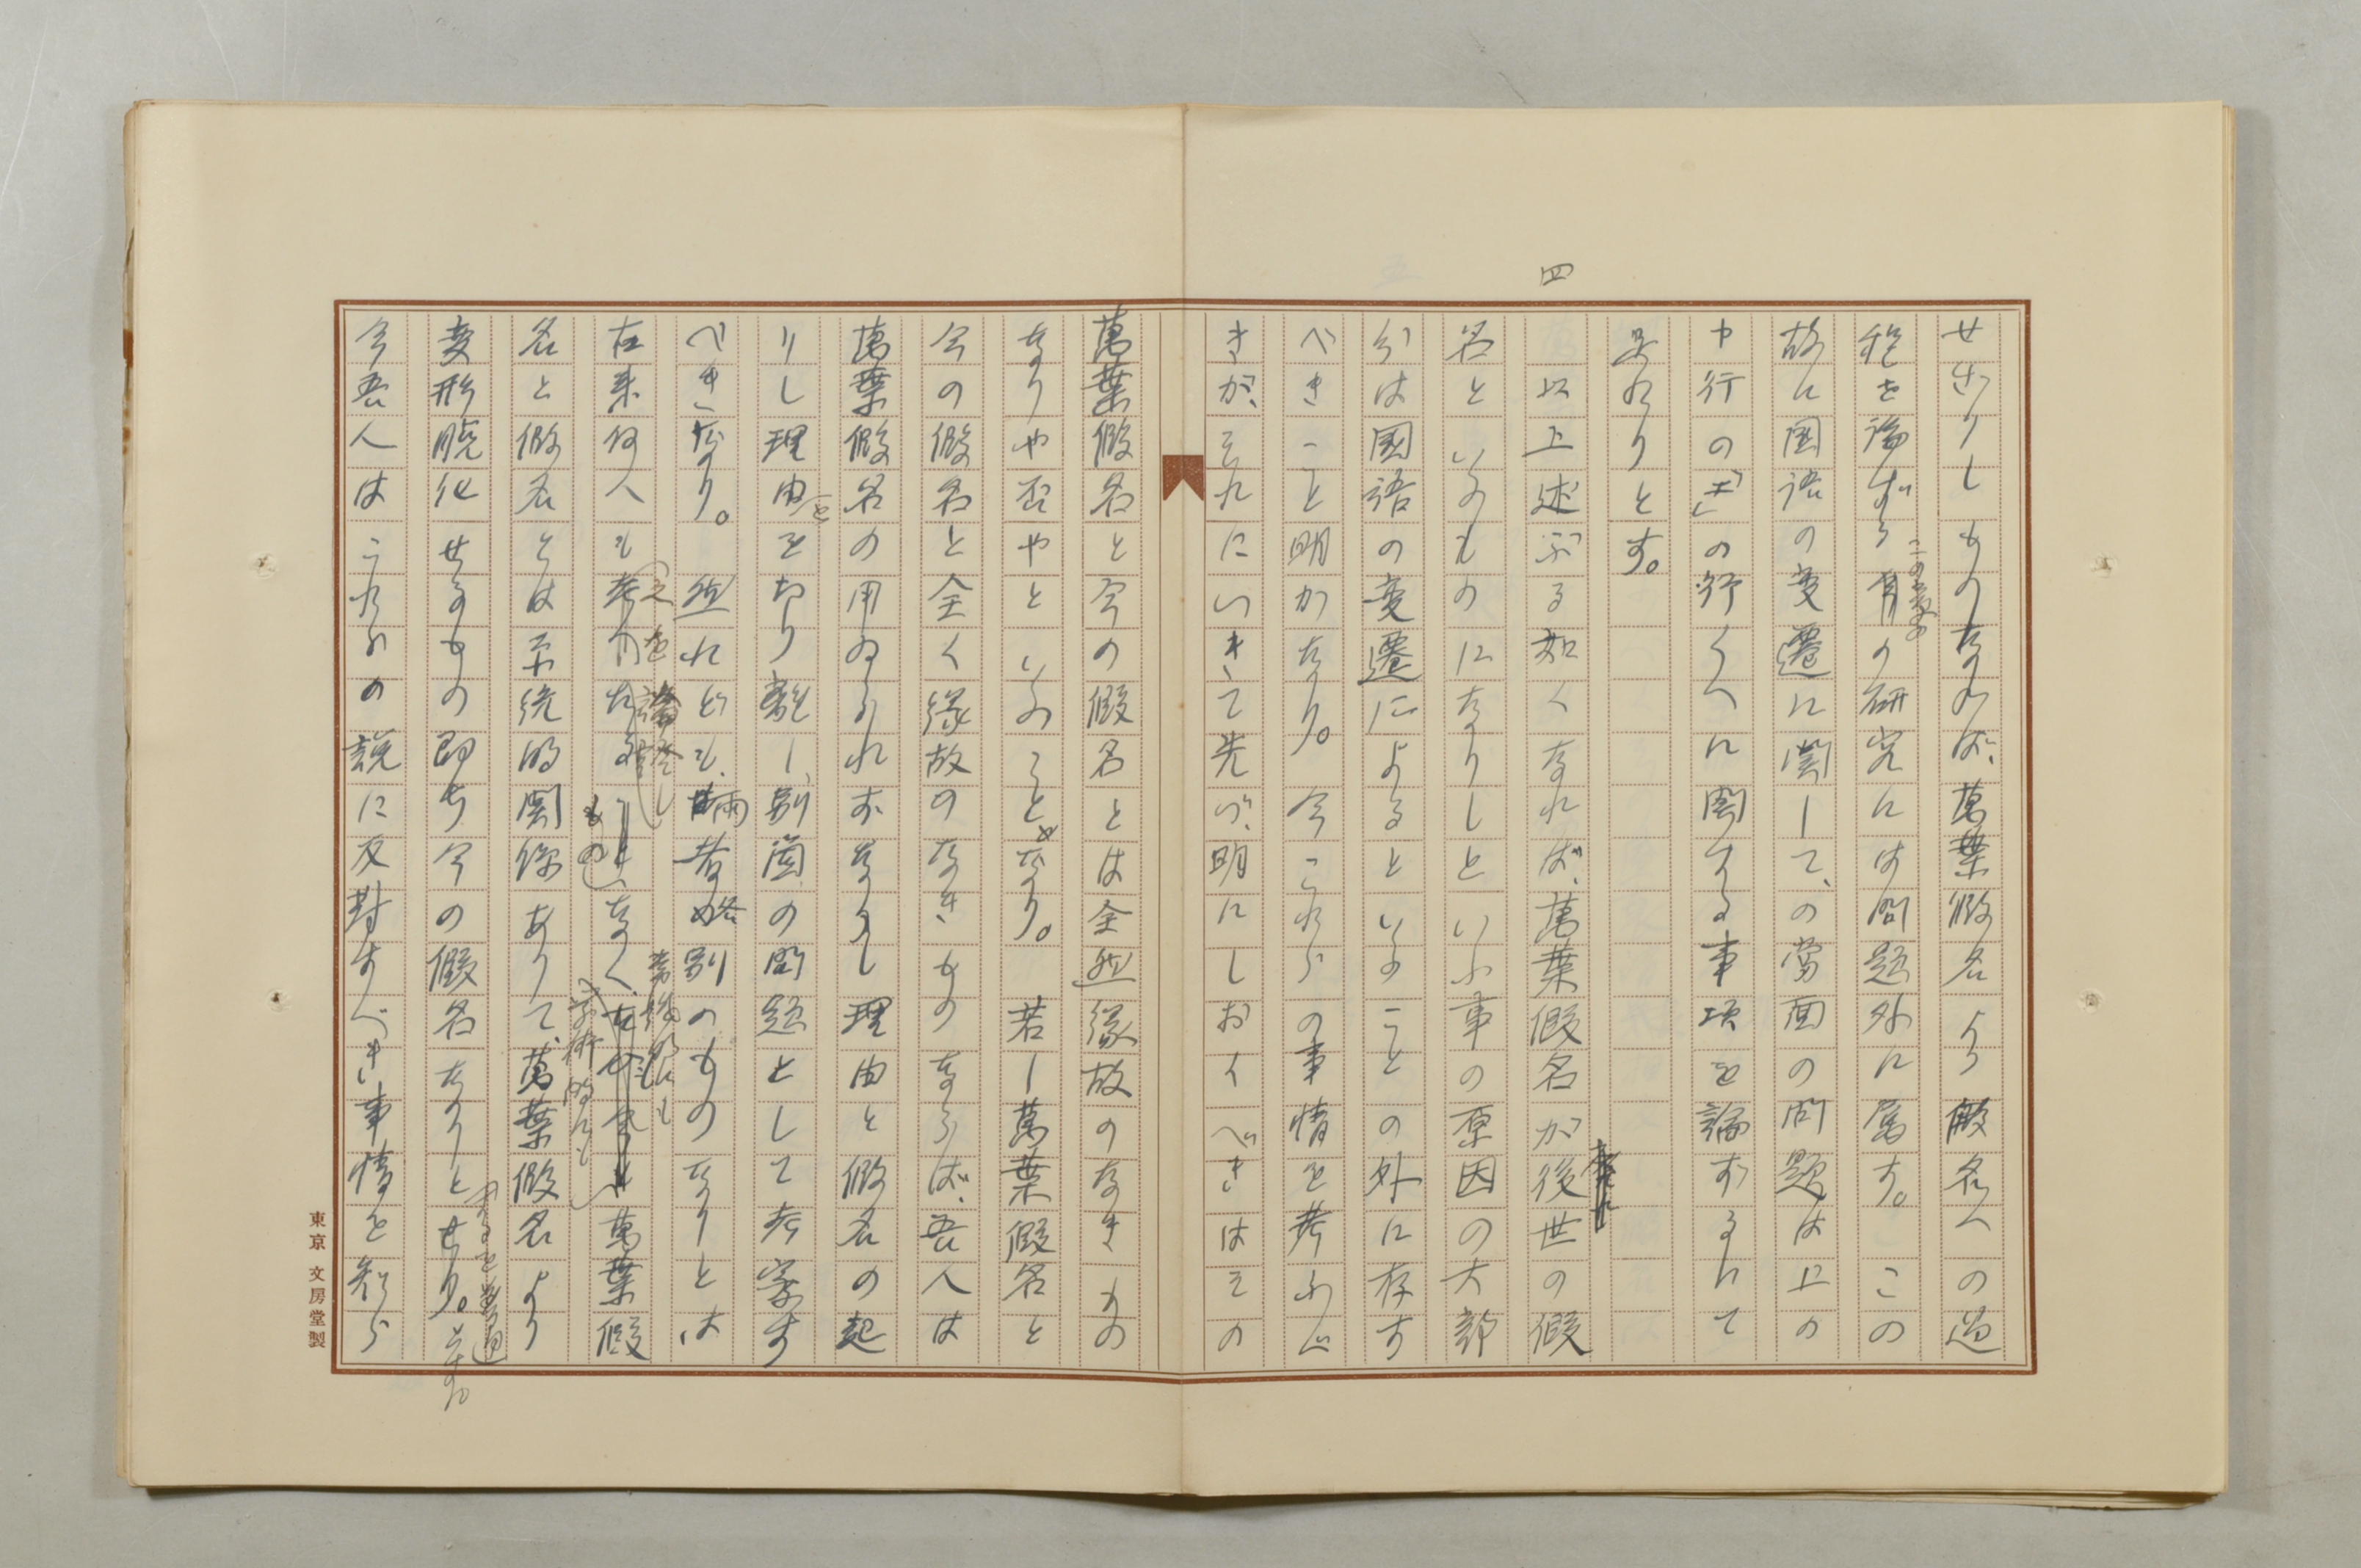 四
せざりしものなれば、萬葉假名より假名への過
程を論ずる の研究には問題外に属す。この
この意
故に国語の変遷に関して、の當面の問題は上の
ヤ行の「エ」の行くへに関する事項を論ずるにて
足れりとす。
以上述ぶる如くなれば、萬葉假名が後世の假
名といふものになりしといふ事の原因の大部
分は國語の変遷によるといふことの外に存す
べきこと明かなり。今これらの事情を考ふべ
きが、それにいきて先づ、明にしおくべきはその
萬葉假名と今の假名とは全然縁故のなきもの
なりや否やといふことなり。若し萬葉假名と
今の假名と全く縁故のなきものならば、吾人は
萬葉假名の用ゐられずなりし理由と假名の起
りし理由とを切り離し、別箇の問題として考察す
べきなり。然れども、兩者 別のものなりとは
之を論證し
在来何人も もの なく、 萬葉假
常識的にも
学術的にも
名と假名とは系統的関係ありて、萬葉假名より
変形脱化せるもの即ち今の假名なりとせり。
するを普通とす。
今吾人はこれらの説に反對すべき事情を知ら
東京 文房堂製